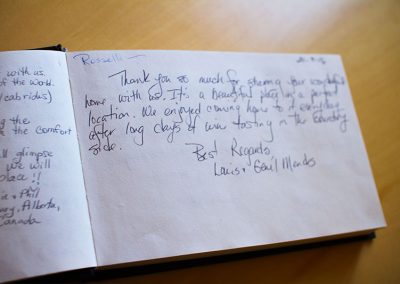 with us.
of the World.
the Comfort
glimpse
we will
place!!
Phil
Alberta,
Canada
Rosselli
Thank you so much for sharing your wonderful
home with us. It's a beautiful place in a perfect
location. We enjoyed coming home to it everyday
after long days of wine tasting in the country
side.
Best Regards
Louis + Gail